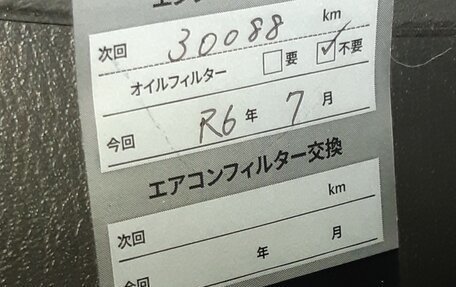 次回 30088 km
オイルフィルター □要 ☑不要
今回 R6年 7月
エアコンフィルター交換
次回 km
年 月
今回